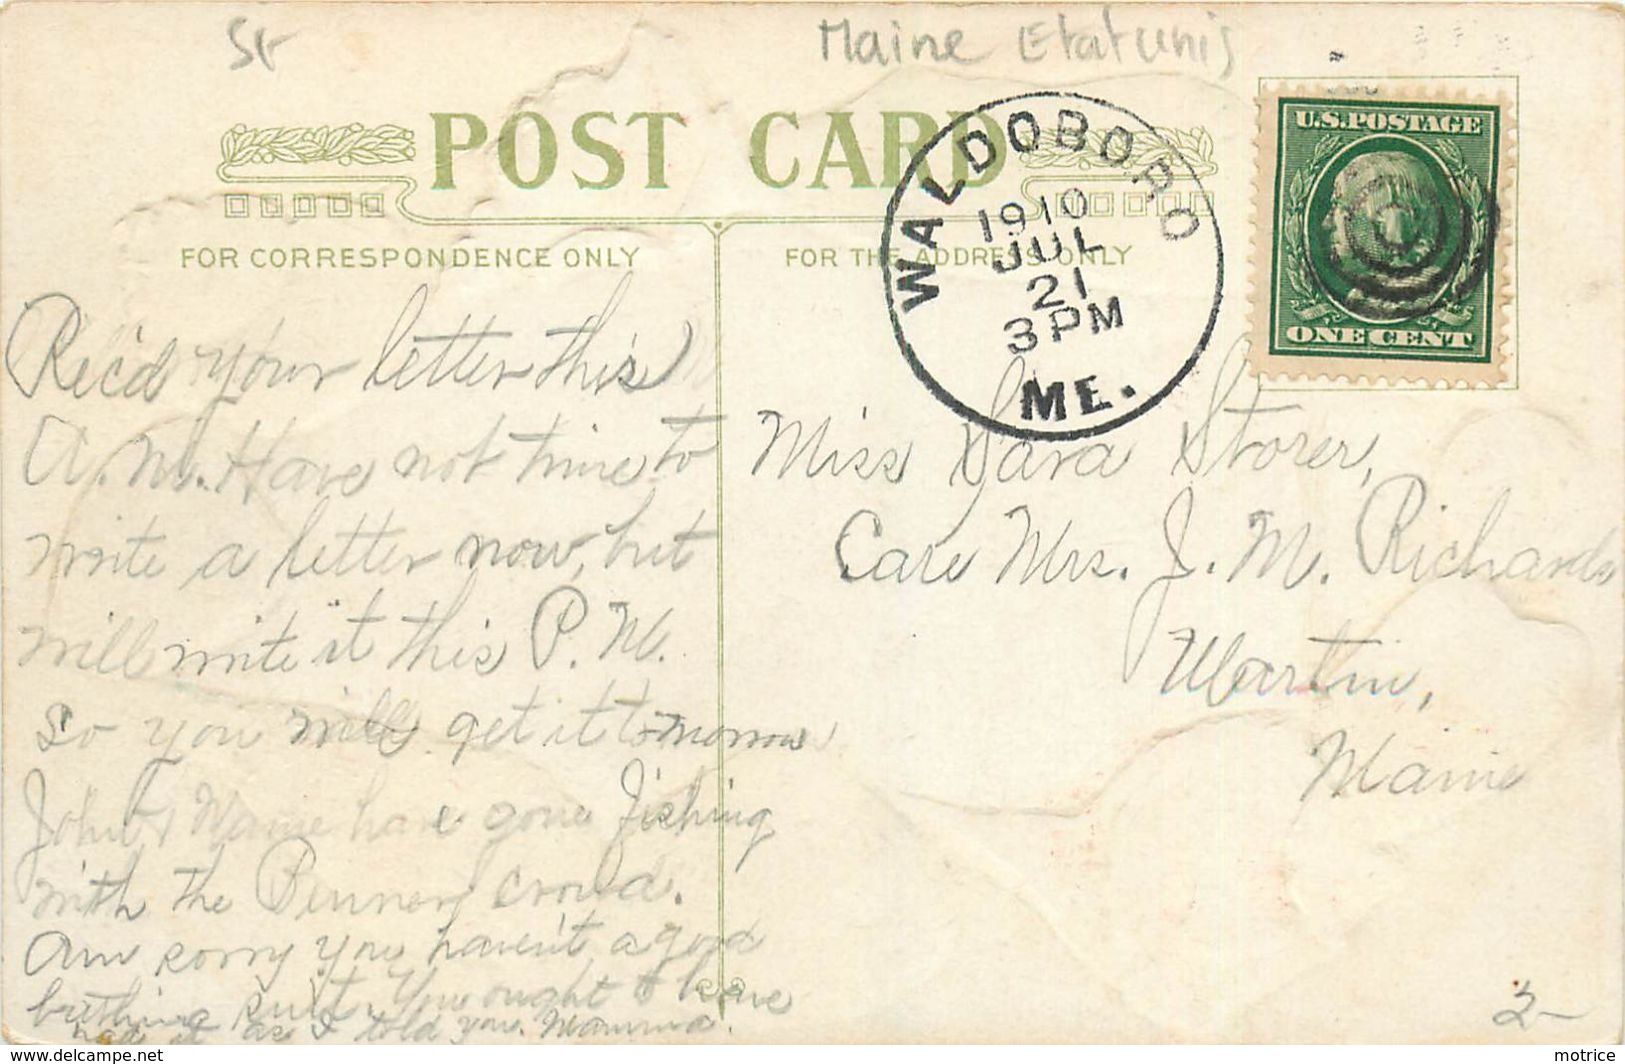 St
Maine Etatunis
POST CARD
FOR CORRESPONDENCE ONLY
FOR THE ADDRESS ONLY
WALDOBORO
1910
JUL
21
3 PM
ME.
U.S. POSTAGE
ONE CENT
Rec'd your letter this
A. M. Have not time to
write a letter now, but
will write it this P. M.
so you will get it tomorrow
John & have gone fishing
with the Benner crowd.
Am sorry you haven't a good
bathing suit. You ought to have
had it as I told you. Mamma.
Miss Sara Storer,
Care Mrs. J. M. Richards
Martin,
Maine
2-
motrice